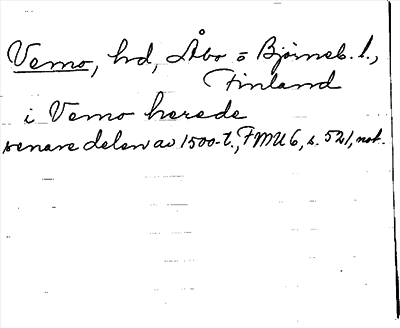 Vemo, hd, Åbo o Björneb. l.,
Finland
i Vemo herede
senare delen av 1500-t., FMU 6, s. 521, not.